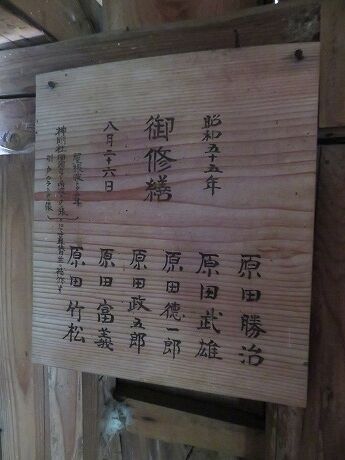 昭和五十五年
御修繕
八月二十六日
原田勝治
原田武雄
原田德一郎
原田政五郎
原田富義
原田竹松